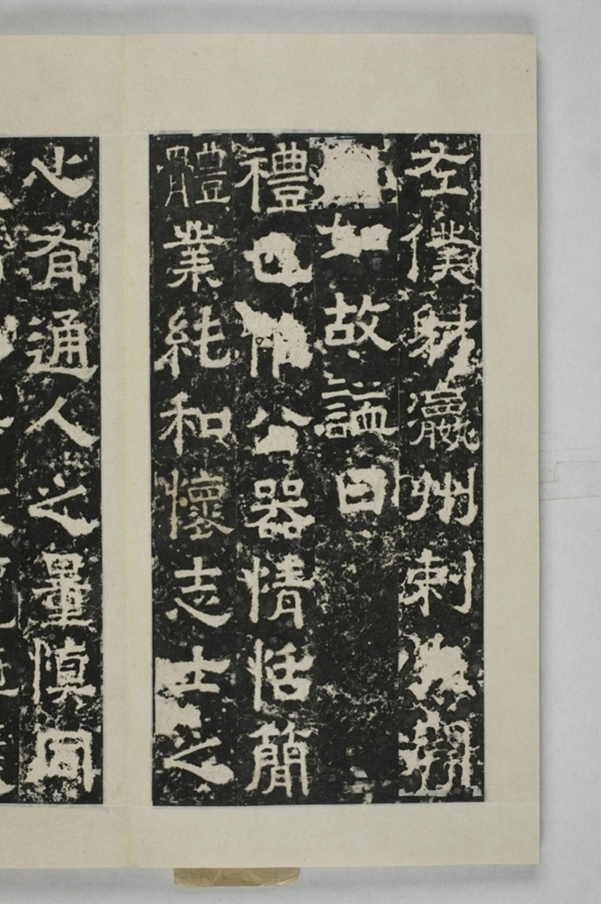 左僕射瀛州刺
如故謚曰
禮也惟公器情恬簡
體業純和懷志士之
心有通人之量慎同